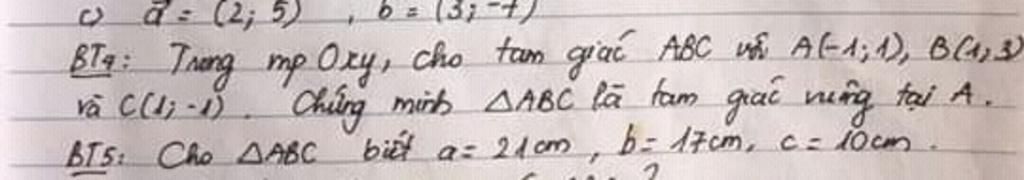 c) a⃗ = (2; 5) , b = (3; -7)
BT4: Trong mp Oxy, cho tam giác ABC với A(-1;1), B(1,3)
và C(1;-1). Chứng minh △ABC là tam giác vuông tại A.
BT5: Cho △ABC biết a = 21cm, b = 17cm, c = 10cm.